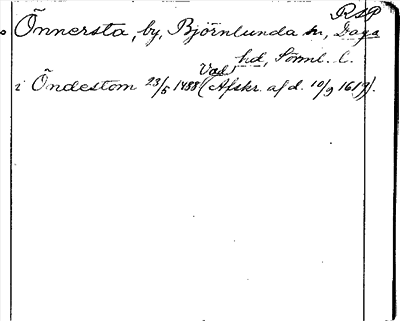 RAP
Önnersta, by, Björnlunda sn, Daga
hd, Söml. l.
i Öndestom 23/5 1488 Vad. (Afskr. af d. 10/9 1619).